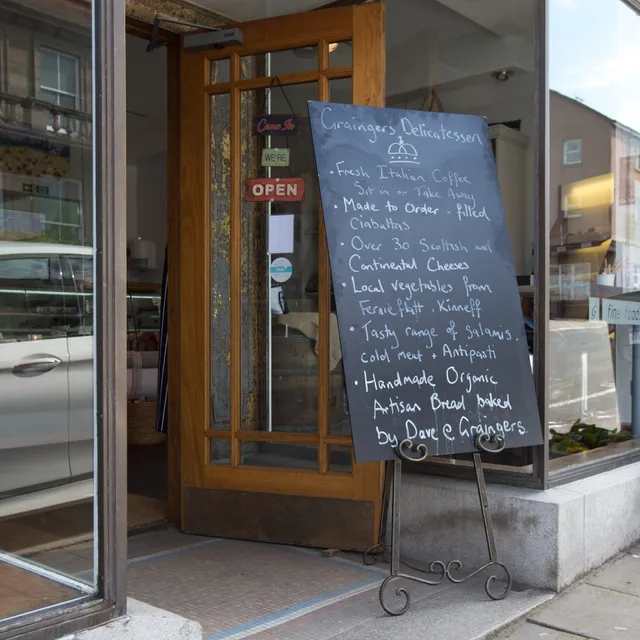 Come In
WE'RE
OPEN
Graingers Delicatessen
• Fresh Italian Coffee
Sit in or Take Away
• Made to Order - filled
Ciabattas
• Over 30 Scottish and
Continental Cheeses
• Local vegetables from
Fernieflatt - Kinneff
• Tasty range of Salamis.
cold meat + Antipasti
• Handmade Organic
Artisan Bread baked
by Dave @ Graingers.
fine food